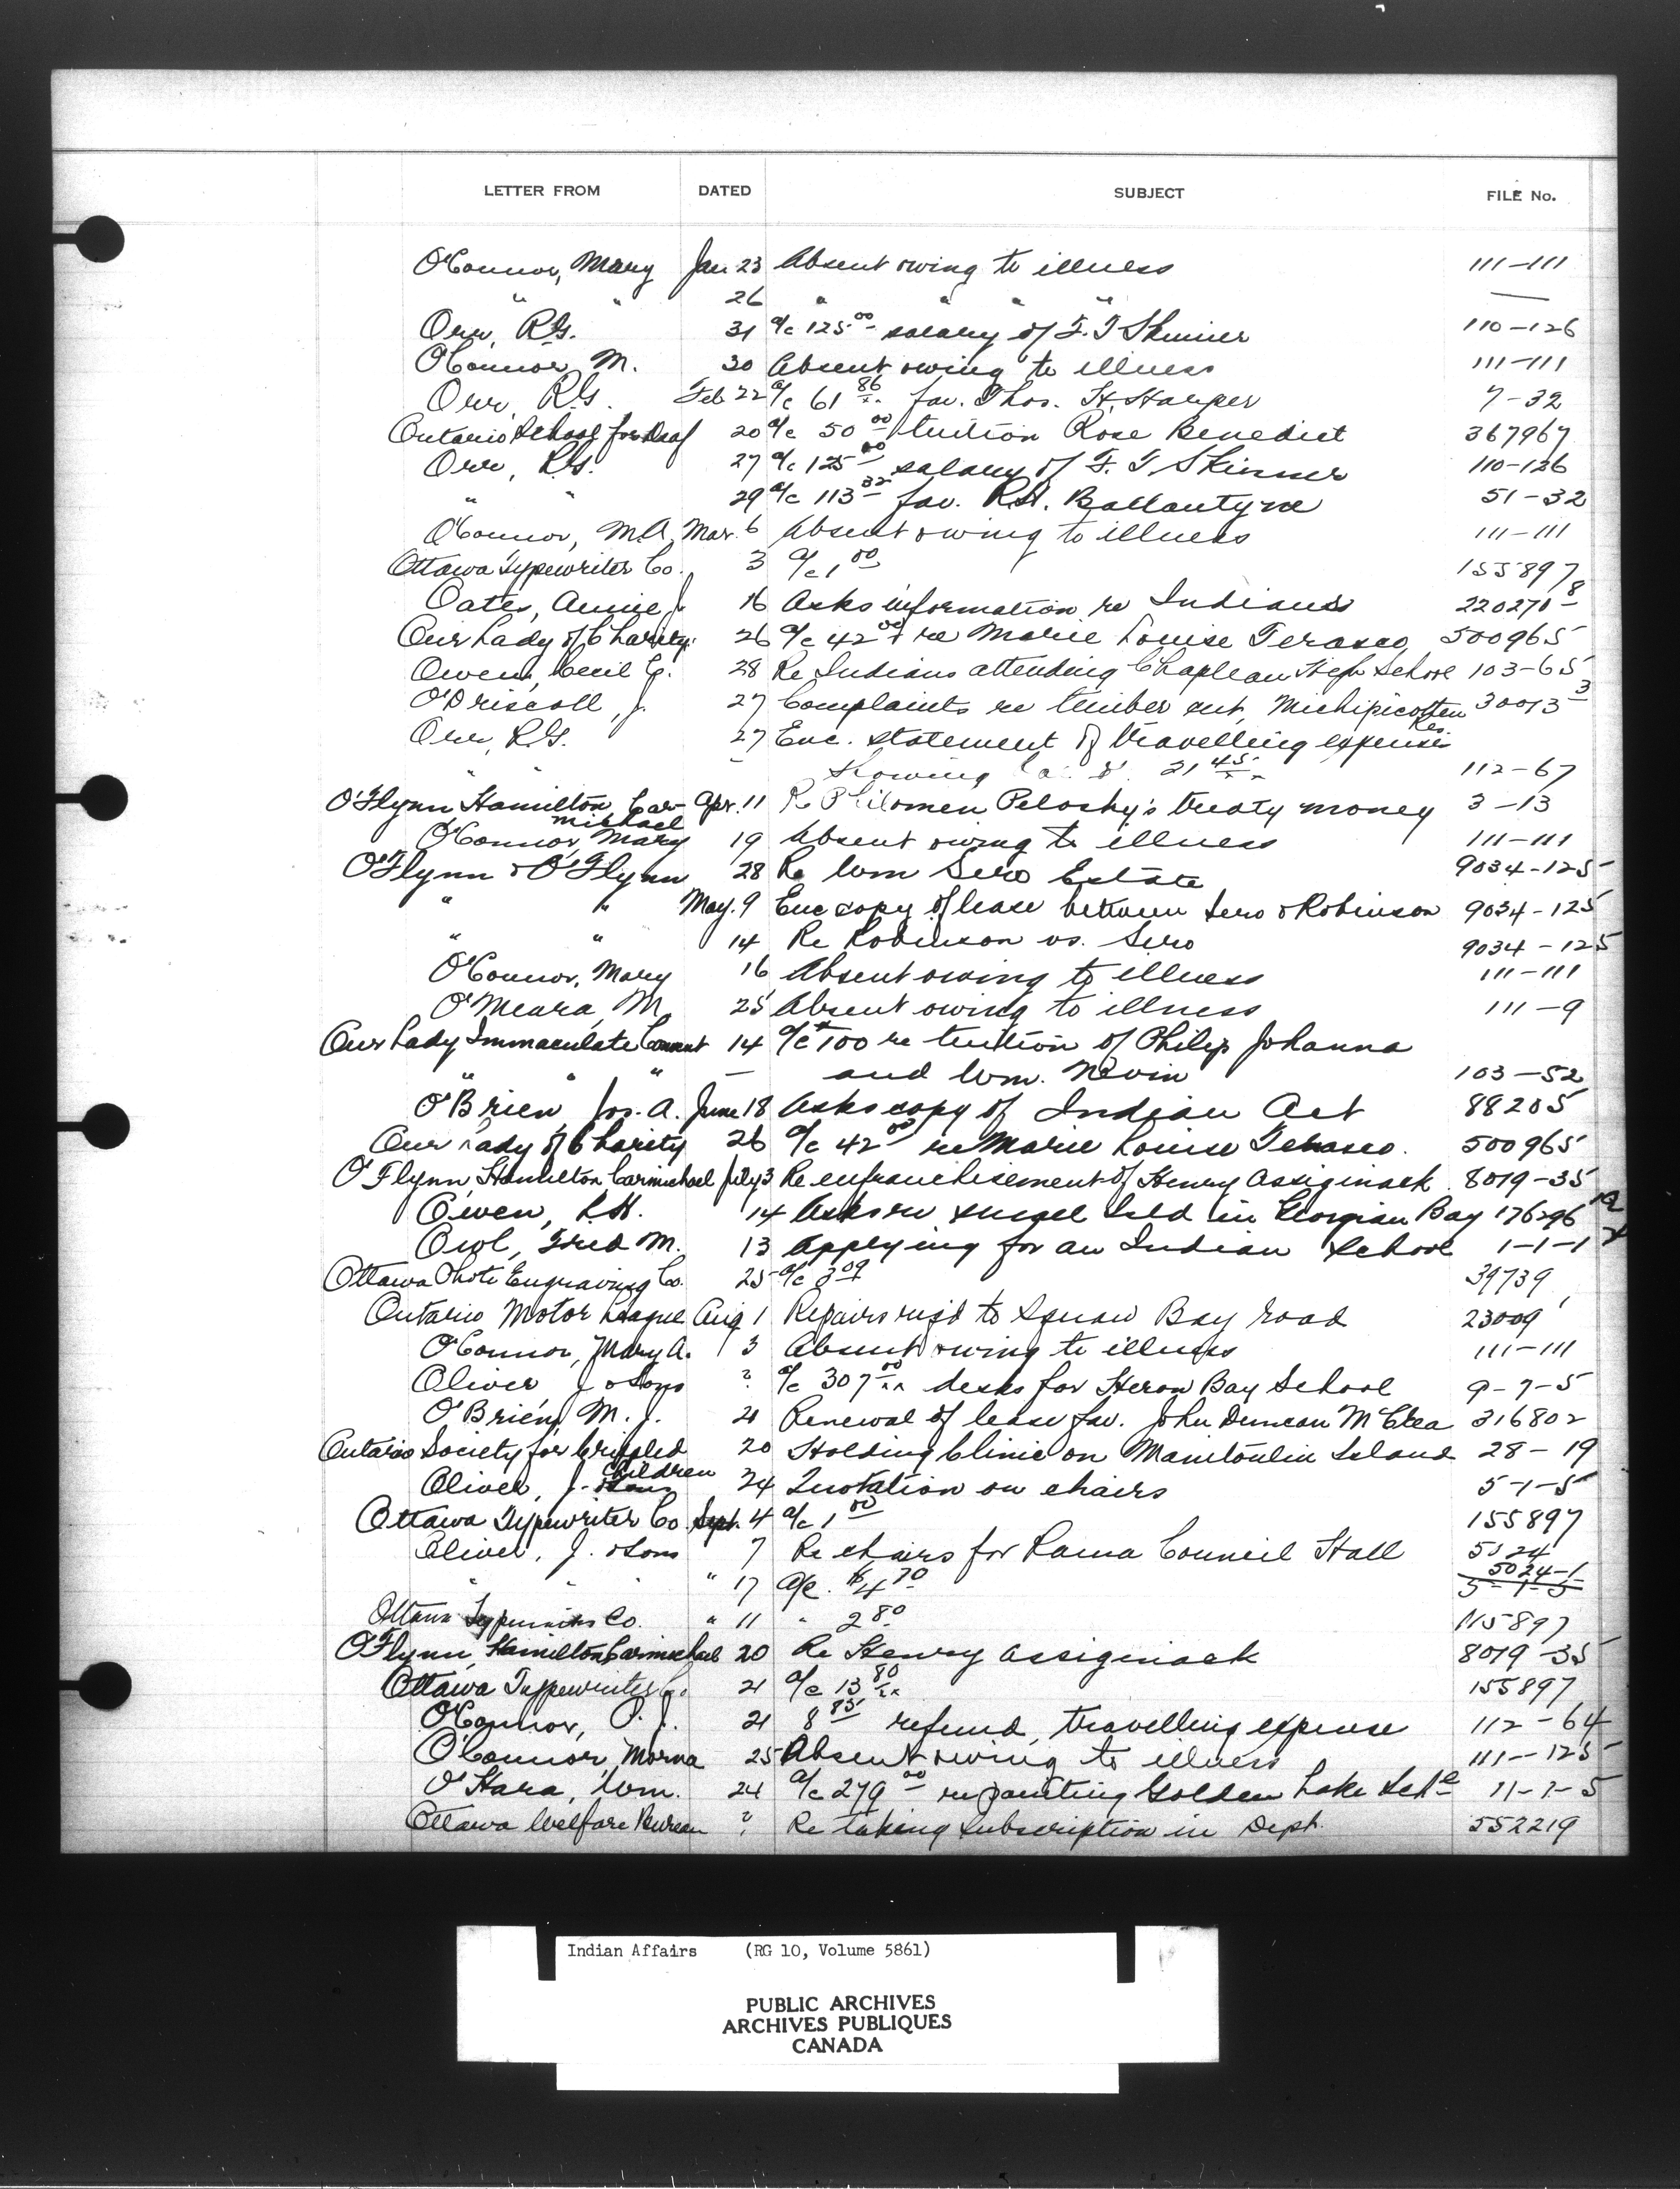 LETTER FROM DATED SUBJECT FILE No.
O'Connor, Mary Jan 23 Absent owing to illness 111-111
" " 26 " " " " —
Orr, R.G. 31 a/c 125.00 salary of F. T Skinner 110-126
O'Connor, M. 30 Absent owing to illness 111-111
Orr, R.G. Feb 22 a/c 61 86/xx fav. Thos. H. Harper 7-32
Ontario School for Deaf 20 a/c 50 00 tuition Rose Benedict 367967
Orr, R.G. 27 a/c 125 00 salary of F. T Skinner 110-126
" " 29 a/c 113 32 fav. R.H. Ballantyne 51-32
O'Connor, M.A. Mar. 6 Absent owing to illness 111-111
Ottawa Typewriter Co. 3 a/c 1 00 155897
Oates, Annie J. 16 Asks information re Indians 220270 8
Our Lady of Charity 26 a/c 42 00 re Marie Louise Terasco 500965
Owen, Cecil G. 28 Re Indians attending Chapleau High School 103-65
O'Driscoll, J. 27 Complaints re timber cut, Michipicoten Res. 30013 3
Orr, R.G. 27 Enc. statement of travelling expenses
" " - showing 21 45 112-67
O'Flynn Hamilton, Carmichael Apr. 11 Re Philomen Pelosky's treaty money 3-13
O'Connor, Mary 19 Absent owing to illness 111-111
O'Flynn & O'Flynn 28 Re Wm Sero Estate 9034-125
" " May. 9 Enc copy of lease between Sero & Robinson 9034-125
" " 14 Re Robinson vs. Sero 9034-125
O'Connor, Mary 16 Absent owing to illness 111-111
O'Meara, M. 25 Absent owing to illness 111-9
Our Lady Immaculate Convent 14 a/c $100 re tuition of Philip Johanna
" " " — and Wm. Nevin 103-52
O'Brien, Jos. A. June 18 Asks copy of Indian Act 88205
Our Lady of Charity 26 a/c 42 00 re Marie Louise Terasco. 500965
O'Flynn, Hamilton Carmichael July 3 Re enfranchisement of Henry Assiginack 8019-35
Owen, R.H. 14 Asks re Island in Georgian Bay 176296
Owl, Fred M. 13 Applying for an Indian School 1-1-1
Ottawa Photo Engraving Co. 25 a/c 3 09 39739
Ontario Motor League Aug 1 Repairs reqd to Squaw Bay road 23009
O'Connor, Mary A. 3 Absent owing to illness 111-111
Oliver, J & Sons " a/c 307 00/xx desks for Heron Bay School 9-7-5
O'Brien, M. J. 21 Renewal of lease fav. John Duncan McCrea 316802
Ontario Society for Crippled Children 20 Holding Clinic on Manitoulin Island 28-19
Oliver, J. & Sons 24 Quotation on chairs 5-1-5
Ottawa Typewriter Co Sept. 4 a/c 1 00 155897
Oliver, J. & Sons " 7 Re chairs for Rama Council Hall 5024
" " " 17 a/c. $4 70 5024-1 5-1-5
Ottawa Typewriter Co. " 11 " 2 80 115897
O'Flynn, Hamilton Carmichael 20 Re Henry Assiginack 8019-35
Ottawa Typewriter Co. 21 a/c 13 80/xx 155897
O'Connor, P. J. 21 8 85 refund, travelling expense 112-64
O'Connor, Morna 25 Absent owing to illness 111-125
O'Hara, Wm. 24 a/c 279 00 re painting Golden Lake Schl 11-7-5
Ottawa Welfare Bureau " Re taking subscription in Dept. 552219
Indian Affairs (RG 10, Volume 5861)
PUBLIC ARCHIVES
ARCHIVES PUBLIQUES
CANADA